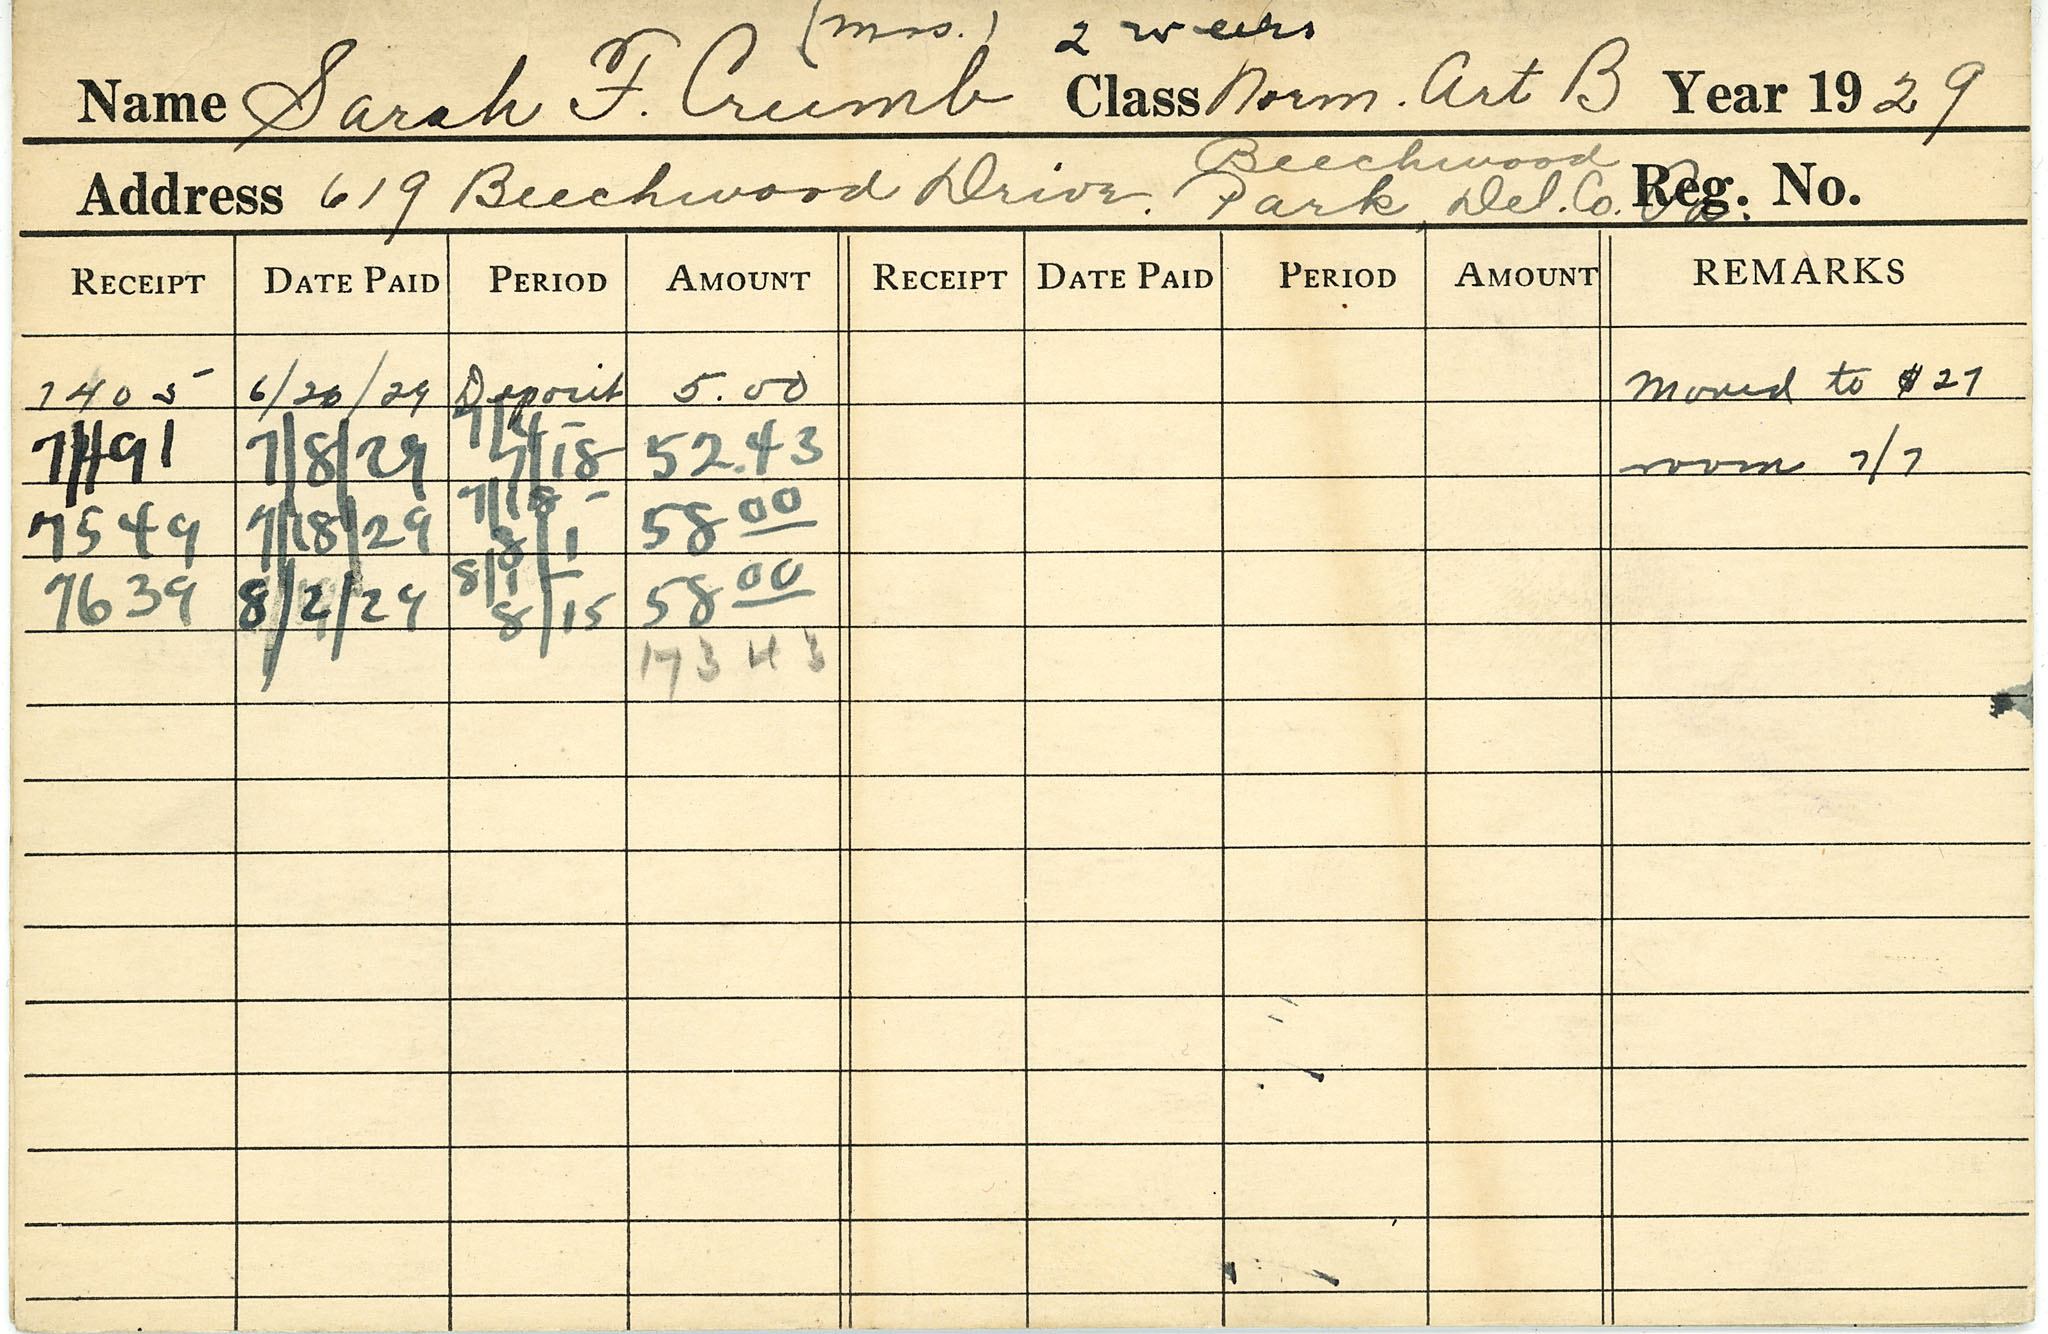 (Mrs.) 2 weeks
Name Sarah F. Crumb Class Norm. Art B Year 1929
Beechwood
Address 619 Beechwood Drive. Park, Del. Co. Pa. Reg. No.
RECEIPT DATE PAID PERIOD AMOUNT RECEIPT DATE PAID PERIOD AMOUNT REMARKS
7405 6/20/29 Deposit 5.00 Moved to $27
7491 7/8/29 7/4- 7/18 52.43 room 7/7
7549 7/18/29 7/18- 8/1 58 00
7639 8/2/29 8/1- 8/15 58 00
173 43